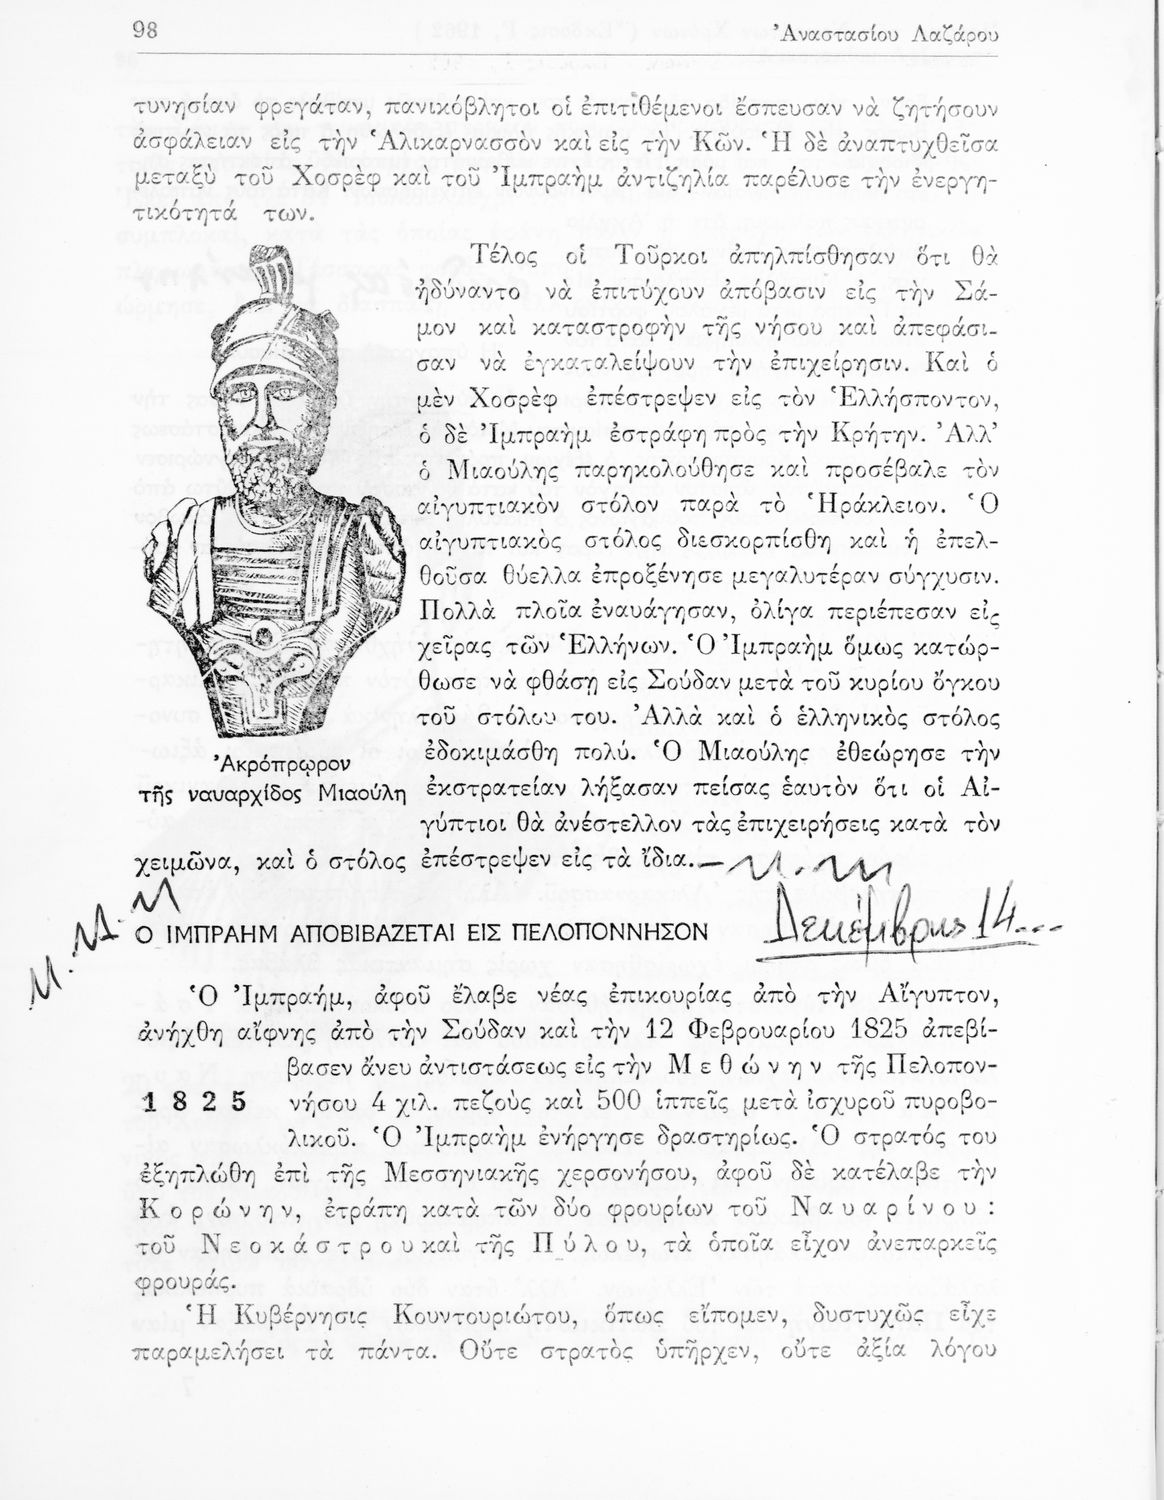 98
Ἀναστασίου Λαζάρου
τυνησίαν φρεγάταν, πανικόβλητοι οἱ ἐπιτιθέμενοι ἔσπευσαν νὰ ζητήσουν
ἀσφάλειαν εἰς τὴν Ἁλικαρνασσὸν καὶ εἰς τὴν Κῶν. Ἡ δὲ ἀναπτυχθεῖσα
μεταξὺ τοῦ Χοσρὲφ καὶ τοῦ Ἰμπραὴμ ἀντιζηλία παρέλυσε τὴν ἐνεργη-
τικότητά των.
Τέλος οἱ Τοῦρκοι ἀπηλπίσθησαν ὅτι θὰ
ἠδύναντο νὰ ἐπιτύχουν ἀπόβασιν εἰς τὴν Σά-
μον καὶ καταστροφὴν τῆς νήσου καὶ ἀπεφάσι-
σαν νὰ ἐγκαταλείψουν τὴν ἐπιχείρησιν. Καὶ ὁ
μὲν Χοσρὲφ ἐπέστρεψεν εἰς τὸν Ἑλλήσποντον,
ὁ δὲ Ἰμπραὴμ ἐστράφη πρὸς τὴν Κρήτην. Ἀλλ’
ὁ Μιαούλης παρηκολούθησε καὶ προσέβαλε τὸν
αἰγυπτιακὸν στόλον παρὰ τὸ Ἡράκλειον. Ὁ
αἰγυπτιακὸς στόλος διεσκορπίσθη καὶ ἡ ἐπελ-
θοῦσα θύελλα ἐπροξένησε μεγαλυτέραν σύγχυσιν.
Πολλὰ πλοῖα ἐναυάγησαν, ὀλίγα περιέπεσαν εἰς
χεῖρας τῶν Ἑλλήνων. Ὁ Ἰμπραὴμ ὅμως κατώρ-
θωσε νὰ φθάσῃ εἰς Σούδαν μετὰ τοῦ κυρίου ὄγκου
τοῦ στόλου του. Ἀλλὰ καὶ ὁ ἑλληνικὸς στόλος
ἐδοκιμάσθη πολύ. Ὁ Μιαούλης ἐθεώρησε τὴν
ἐκστρατείαν λήξασαν πείσας ἑαυτὸν ὅτι οἱ Αἰ-
γύπτιοι θὰ ἀνέστελλον τὰς ἐπιχειρήσεις κατὰ τὸν
χειμῶνα, καὶ ὁ στόλος ἐπέστρεψεν εἰς τὰ ἴδια.
Ἀκρόπρῳρον
τῆς ναυαρχίδος Μιαούλη
Μ.Μ.Μ
Ο ΙΜΠΡΑΗΜ ΑΠΟΒΙΒΑΖΕΤΑΙ ΕΙΣ ΠΕΛΟΠΟΝΝΗΣΟΝ
Δεκέμβριος 14...
Ὁ Ἰμπραήμ, ἀφοῦ ἔλαβε νέας ἐπικουρίας ἀπὸ τὴν Αἴγυπτον,
ἀνήχθη αἴφνης ἀπὸ τὴν Σούδαν καὶ τὴν 12 Φεβρουαρίου 1825 ἀπεβί-
βασεν ἄνευ ἀντιστάσεως εἰς τὴν Μεθώνην τῆς Πελοπον-
1825 νήσου 4 χιλ. πεζοὺς καὶ 500 ἱππεῖς μετὰ ἰσχυροῦ πυροβο-
λικοῦ. Ὁ Ἰμπραὴμ ἐνήργησε δραστηρίως. Ὁ στρατός του
ἐξηπλώθη ἐπὶ τῆς Μεσσηνιακῆς χερσονήσου, ἀφοῦ δὲ κατέλαβε τὴν
Κορώνην, ἐτράπη κατὰ τῶν δύο φρουρίων τοῦ Ναυαρίνου:
τοῦ Νεοκάστρου καὶ τῆς Πύλου, τὰ ὁποῖα εἶχον ἀνεπαρκεῖς
φρουράς.
Ἡ Κυβέρνησις Κουντουριώτου, ὅπως εἴπομεν, δυστυχῶς εἶχε
παραμελήσει τὰ πάντα. Οὔτε στρατὸς ὑπῆρχεν, οὔτε ἀξία λόγου